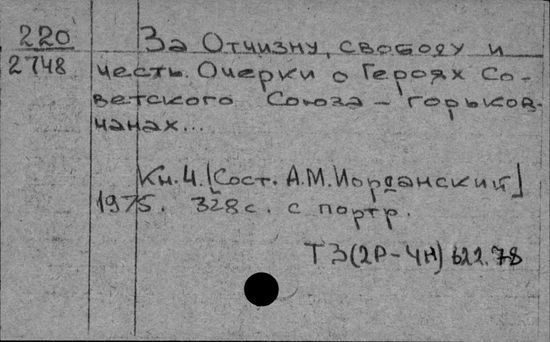 220
2748
За Отчизну, свободу и
честь. Очерки о Героях Со-
ветского Союза - горьков-
чанах...
Кн. 4. [Сост. А.М. Иорданский]
1975. 328 с. с портр.
Т3(2Р-4Н) 622.78